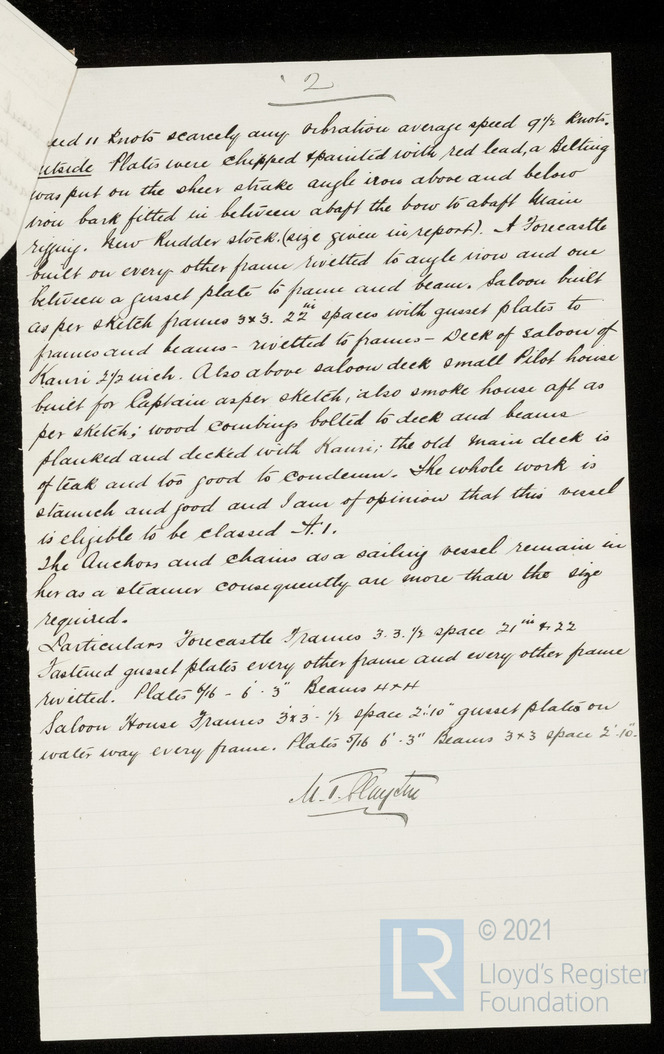 2
eed 11 Knots scarcely any vibration average speed 9½ Knots.
utside Plates were chipped & painted with red lead, a Belting
was put on the sheer strake angle iron above and below
iron bark fitted in between abaft the bow to abaft Main
rigging. New Rudder stock. (size given in report). A Forecastle
built on every other frame rivetted to angle iron and one
between a gusset plate to frame and beam. Saloon built
as per sketch frames 3x3. 22in spaces with gusset plates to
frames and beams - rivetted to frames - Deck of saloon of
Kauri 2½ inch. Also above saloon deck small Pilot house
built for Captain as per sketch, also smoke house aft as
per sketch; wood combings bolted to deck and beams
planked and decked with Kauri; the old main deck is
of teak and too good to condemn. The whole work is
staunch and good and I am of opinion that this vessel
is eligible to be classed A.1.
The Anchors and chains as a sailing vessel remain in
her as a steamer consequently are more than the size
required.
Particulars Forecastle Frames 3.3.½ space 21ins & 22
Fastened gusset plates every other frame and every other frame
rivetted. Plates - 6'.3" Beams 4x4
Saloon House Frames 3x3.½ space 2'.10" gusset plates on
water way every frame. Plates 5/16 6'.3" Beams 3x3 space 2'.10".
LR
© 2021
Lloyd's Register
Foundation